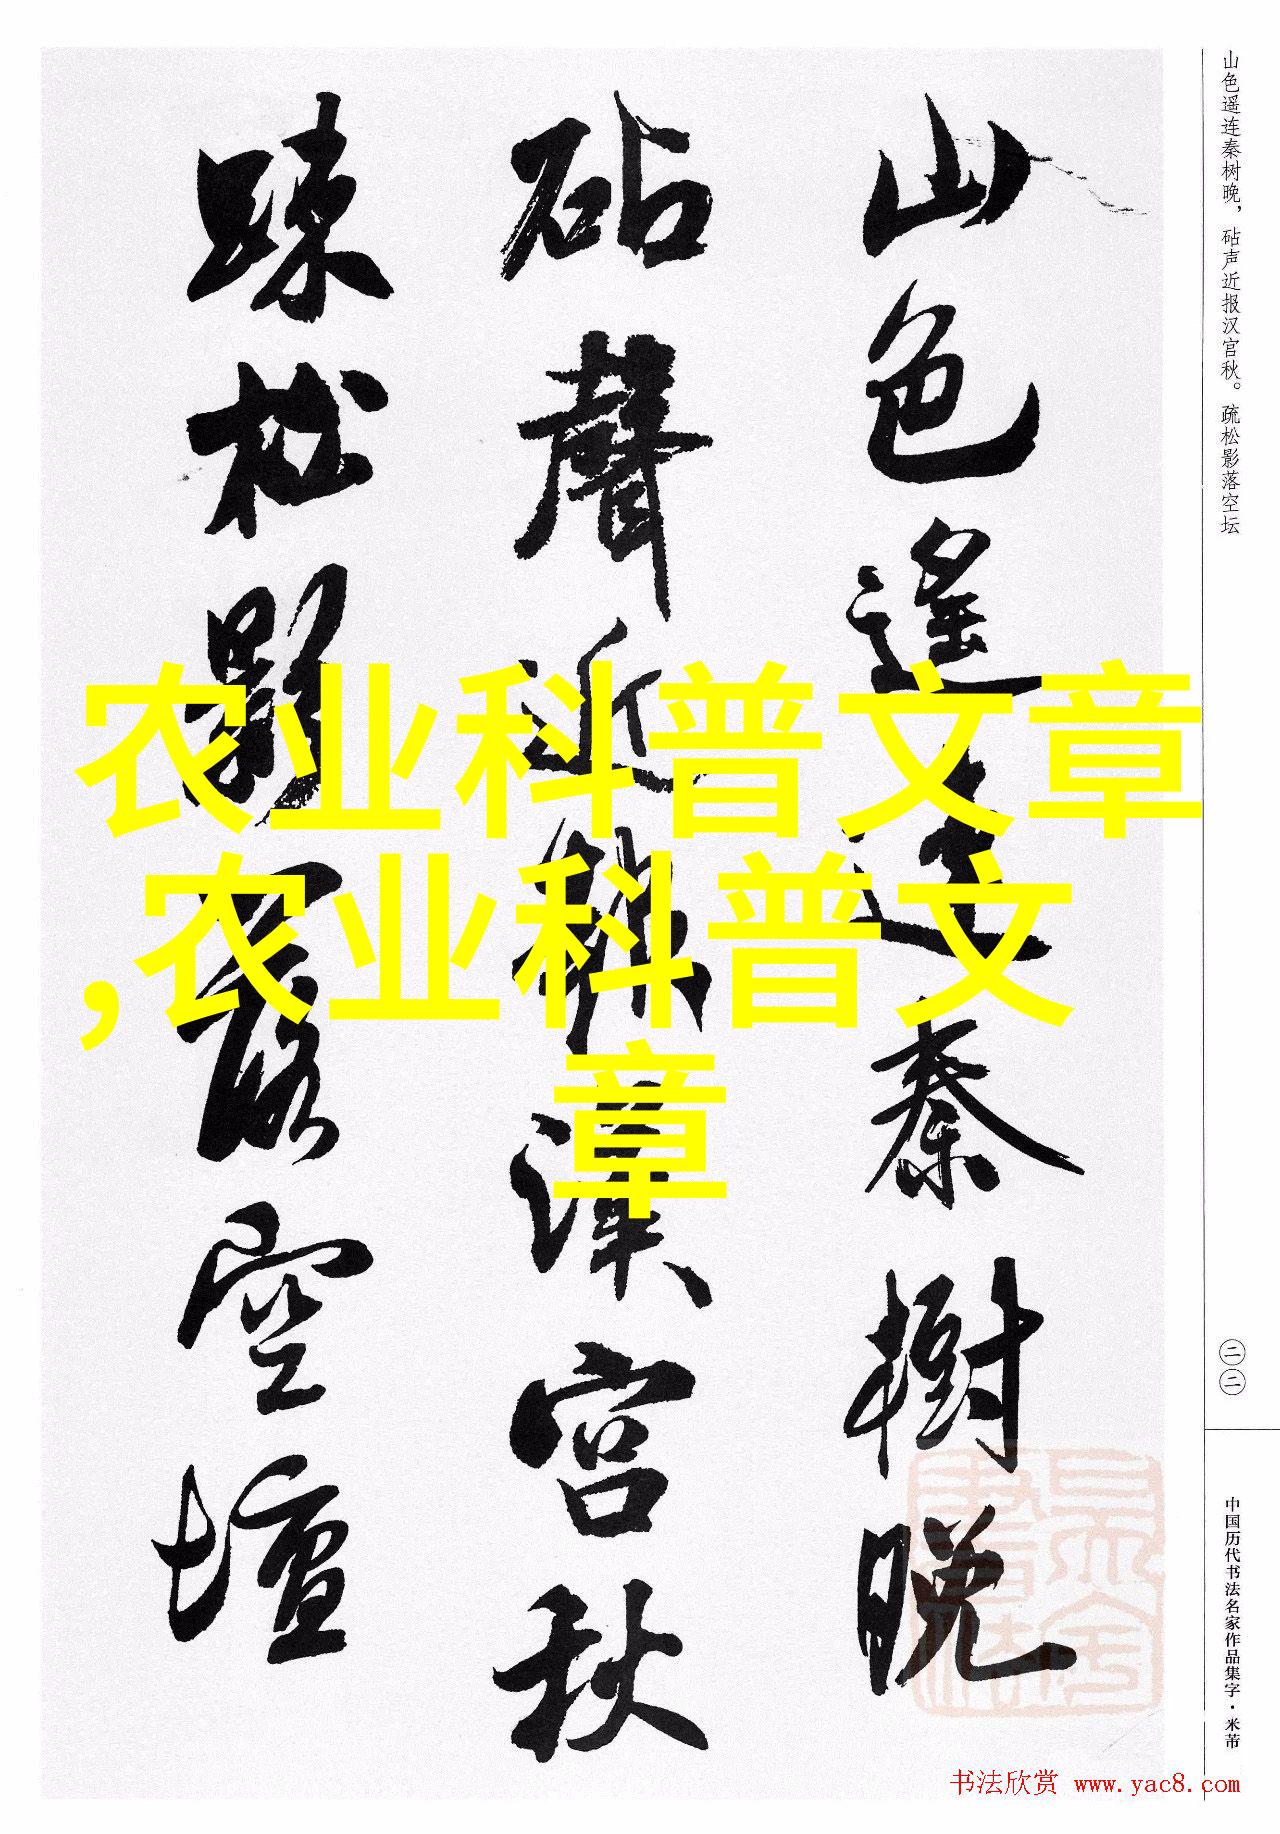 山色遥连秦树晚，砧声近报汉宫秋。疏松影落空坛
山色遙連秦樹晚
砧聲近報漢宮秋
疎松影落空壇
农业科普文章
,农业科普文
章
二二
中国历代书法名家作品集字·米芾
书法欣赏 www.yac8.com